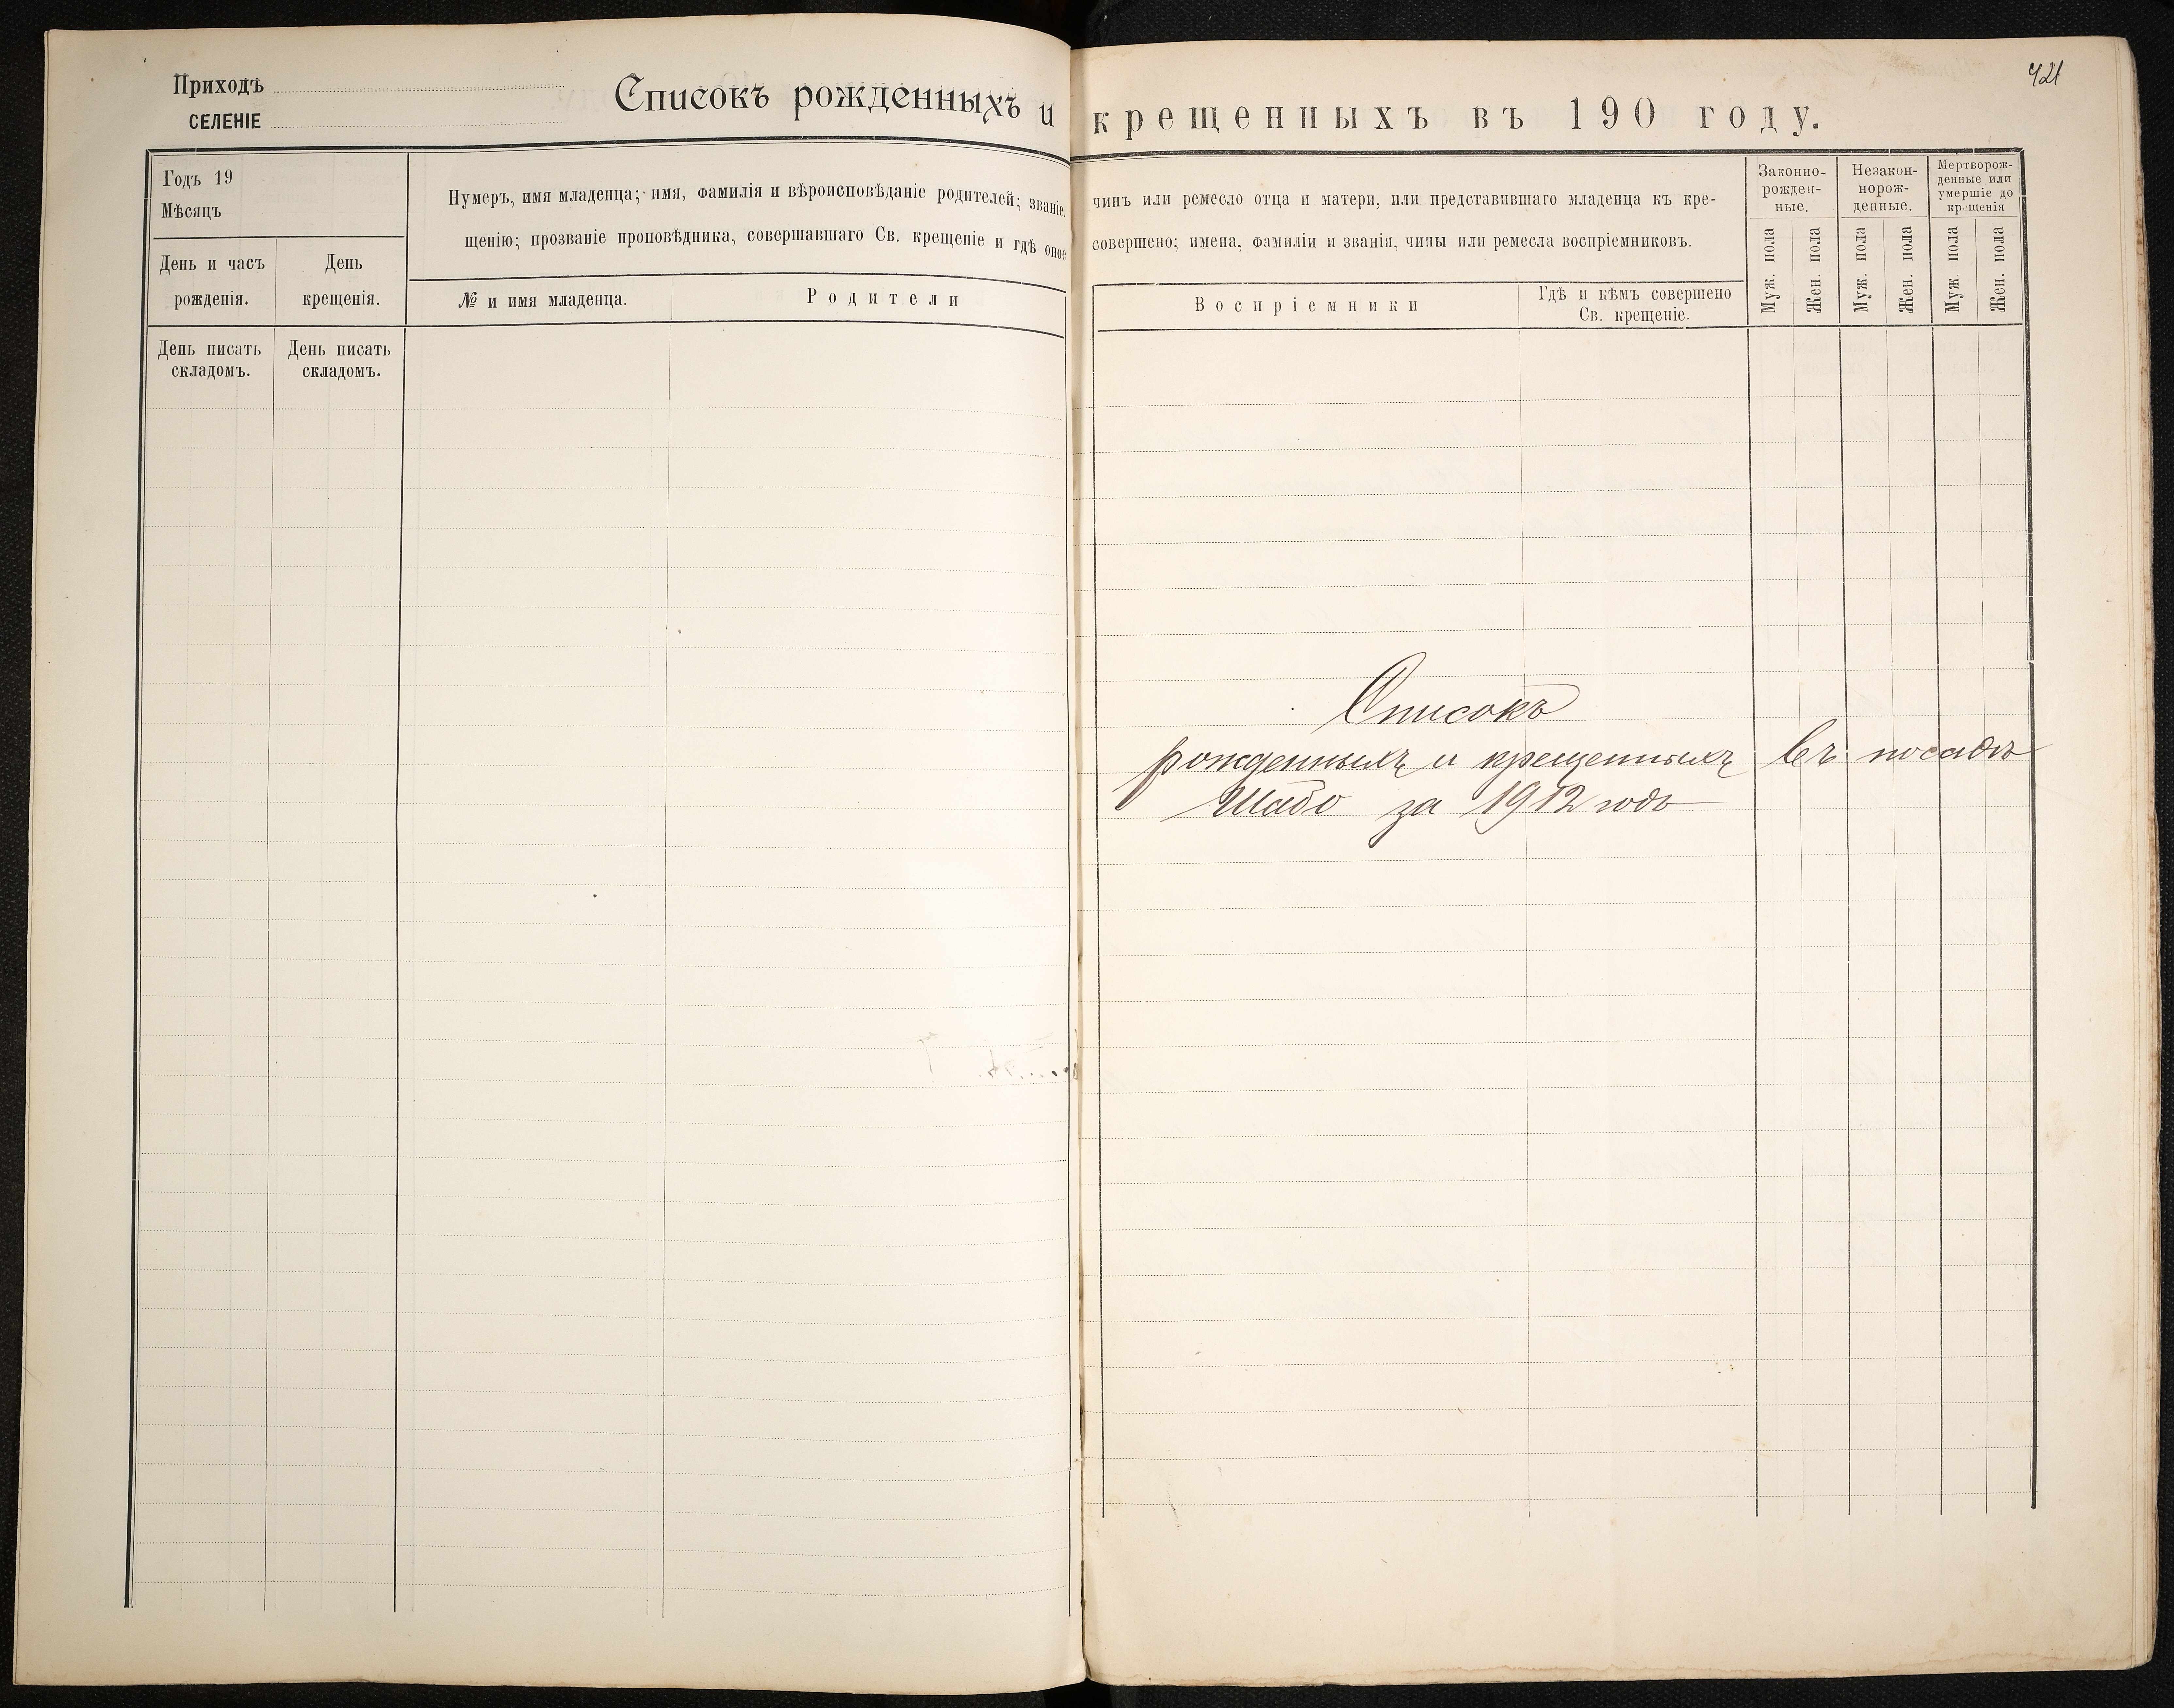 421
Приходъ
СЕЛЕНІЕ
Списокъ рожденныхъ и крещенныхъ въ 190 году.
Годъ 19
Мѣсяцъ
День и часъ рожденія.
День крещенія.
Нумеръ, имя младенца; имя, фамилія и вѣроисповѣданіе родителей; званіе, чинъ или ремесло отца и матери, или представившаго младенца къ кре-
щенію; прозваніе проповѣдника, совершавшаго Св. крещеніе и гдѣ оное совершено; имена, фамиліи и званія, чины или ремесла воспріемниковъ.
№ и имя младенца.
Родители
Воспріемники
Гдѣ и кѣмъ совершено
Св. крещеніе.
Законно-
рожден-
ные.
Незакон-
норож-
денные.
Мертворож-
денные или
умершіе до
крщенія
Муж. пола
Жен. пола
Муж. пола
Жен. пола
Муж. пола
Жен. пола
День писать
складомъ.
День писать
складомъ.
Списокъ
рожденныхъ и крещенныхъ въ посадѣ
Шабо за 1912 годъ